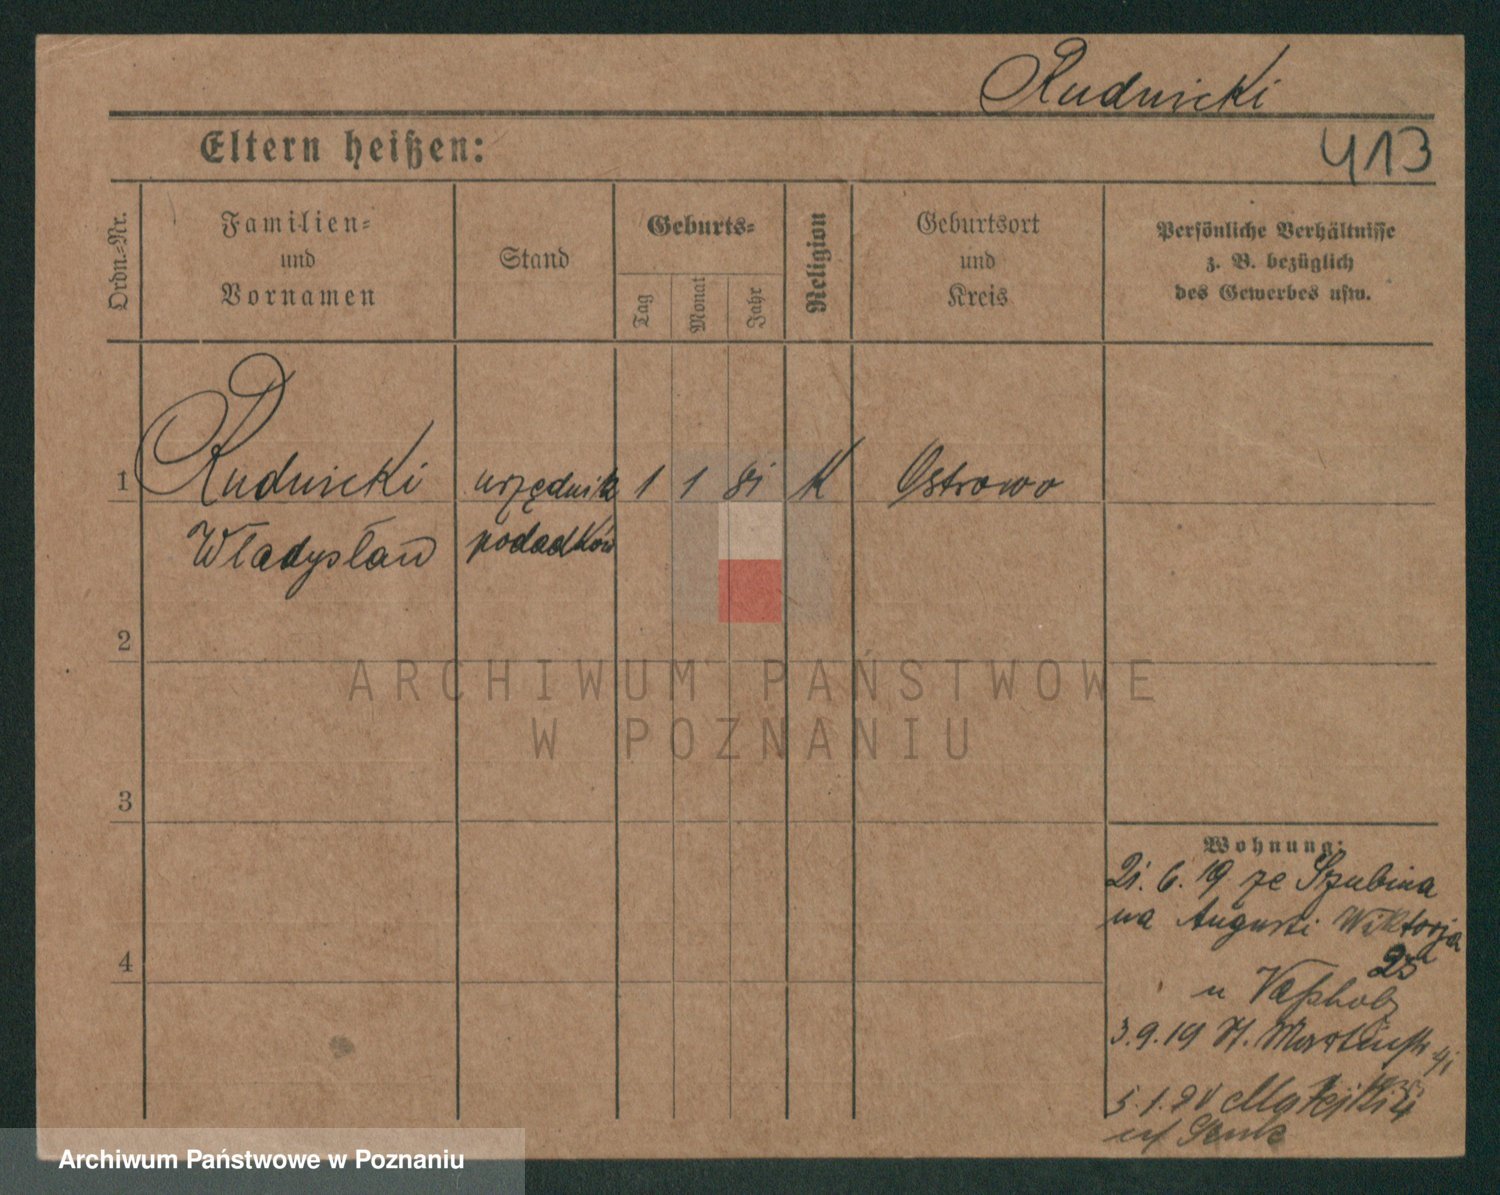 Rudnicki
413
Eltern heißen:
Ordn.-Nr.
Familien-
und
Vornamen
Stand
Geburts-
Tag
Monat
Jahr
Religion
Geburtsort
und
Kreis
Persönliche Verhältnisse
z. B. bezüglich
des Gewerbes usw.
1 Rudnicki urzędnik 1 1 81 K Ostrowo
Władysław podadków
2
3
4
Wohnung:
21. 6. 19. ze Szubina
na Augusti Wiktorja
25
u
3.9.19 St. Martinstr
5.1.
ARCHIWUM PAŃSTWOWE
W POZNANIU
Archiwum Państwowe w Poznaniu